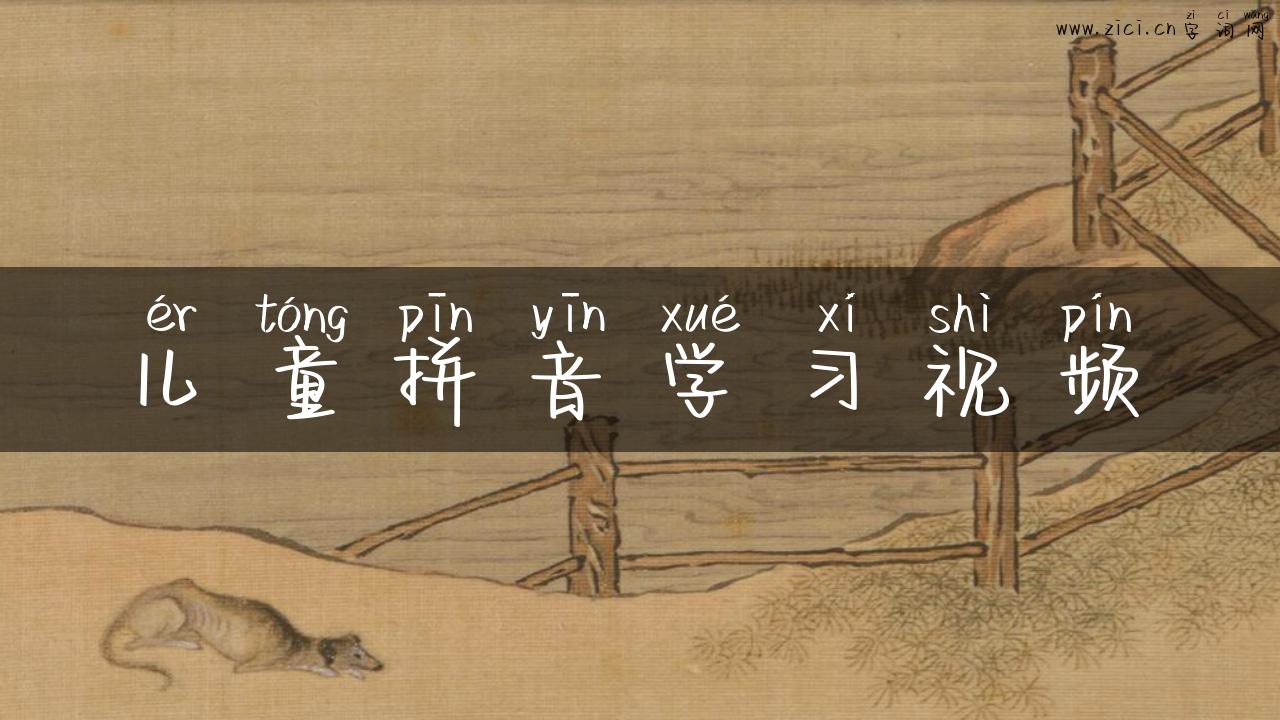 zì cí wǎng
www.zici.cn 字词网
ér tóng pīn yīn xué xí shì pín
儿童拼音学习视频